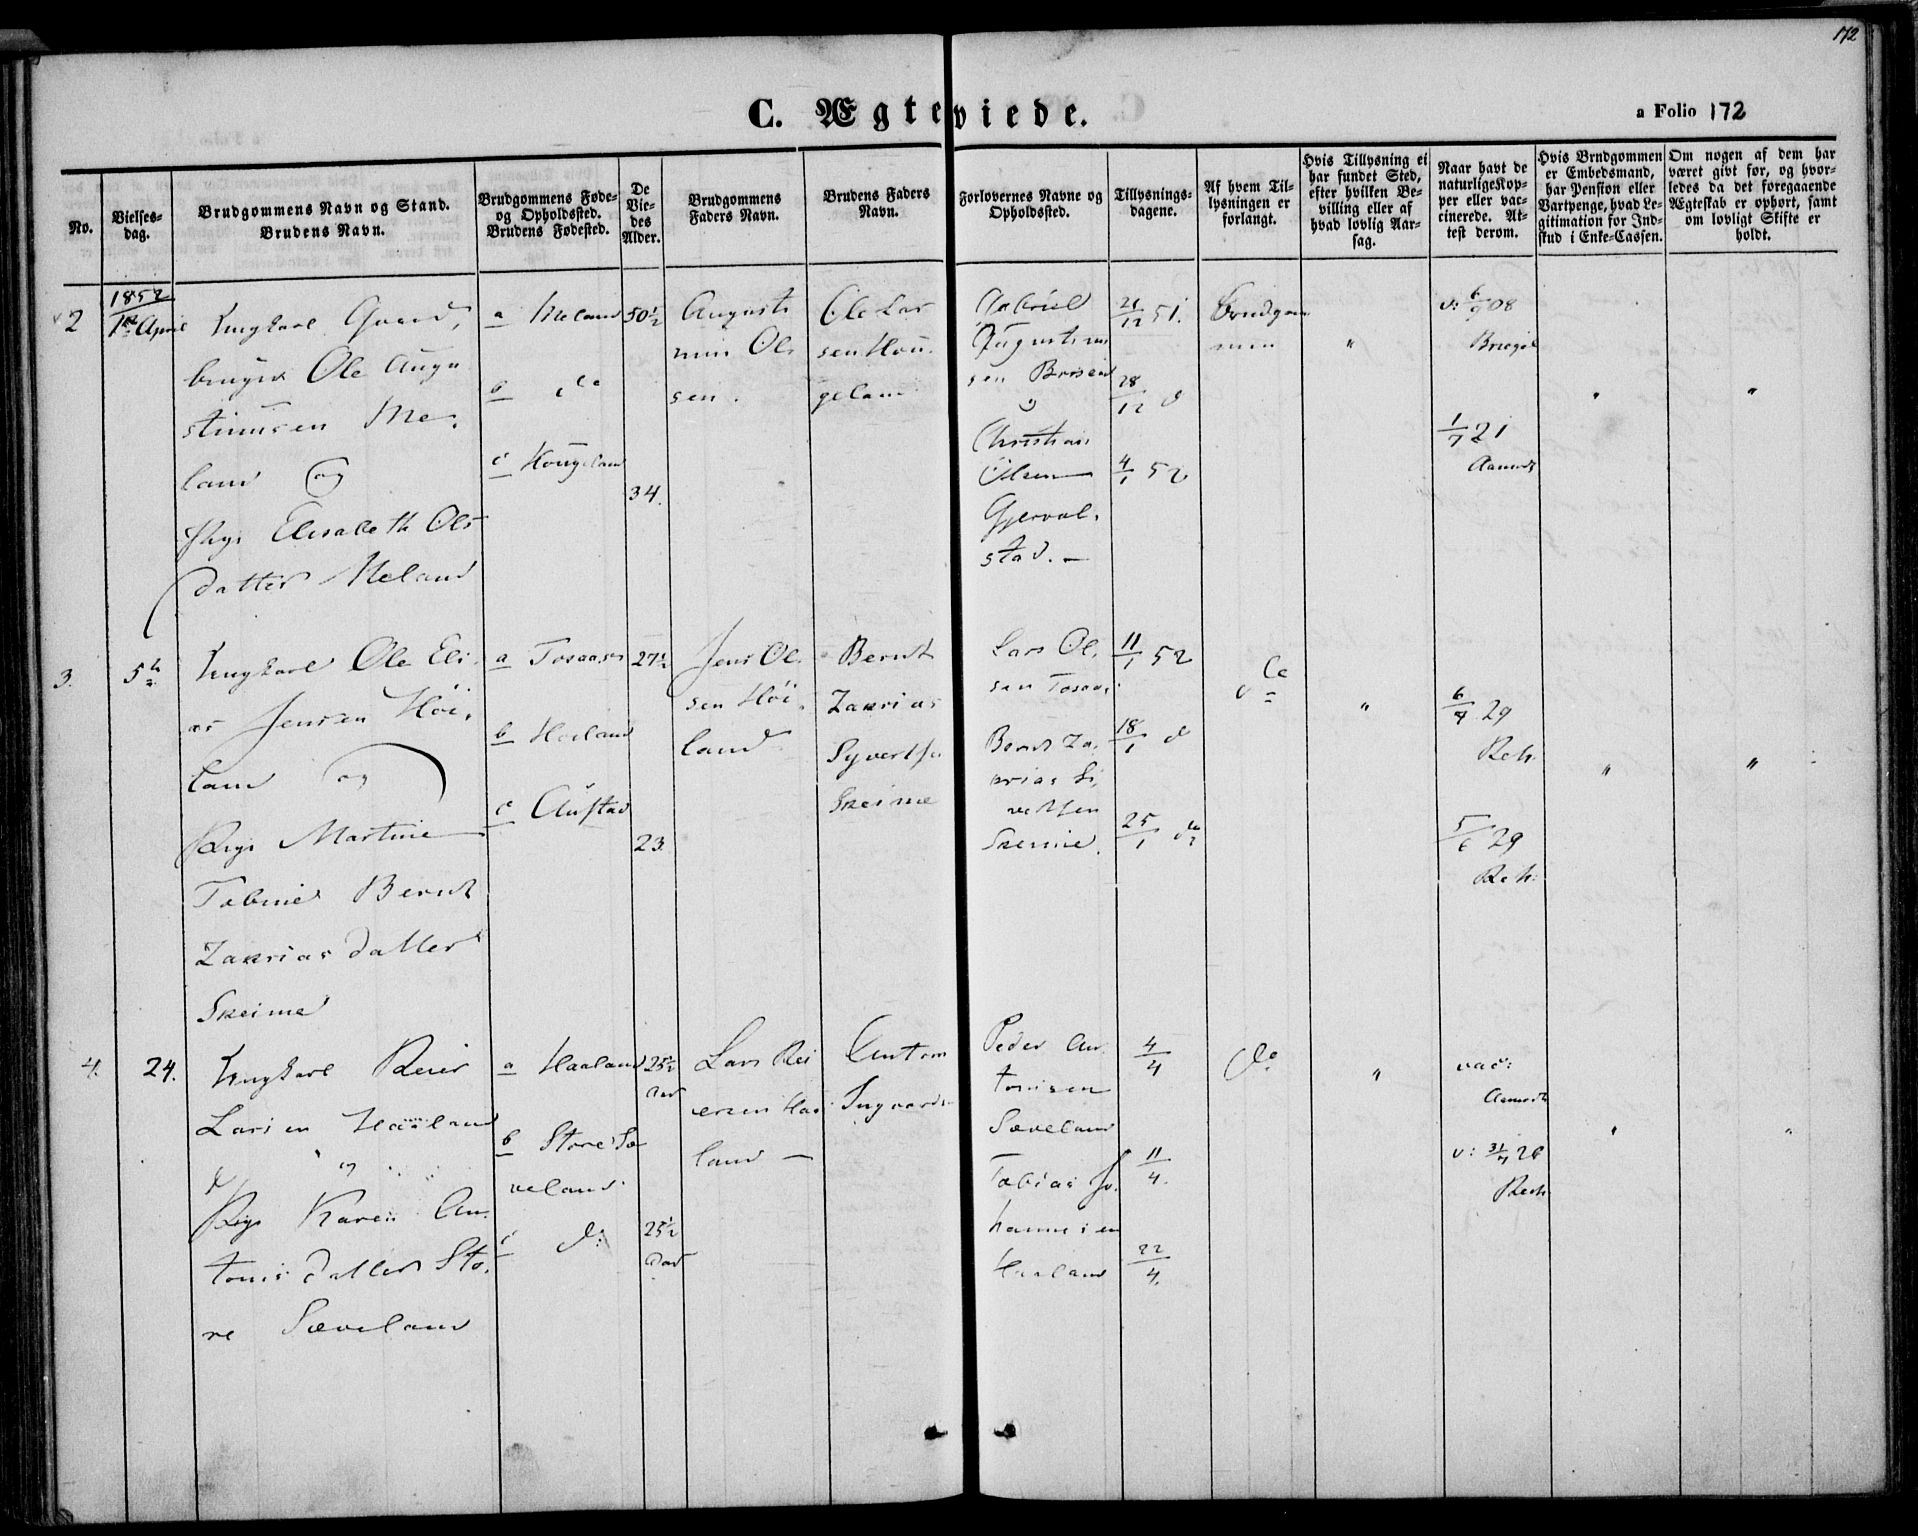 172
C. Ægteviede.
a Folio 172
No.
Vielses-
dag.
Brudgommens Navn og Stand.
Brudens Navn.
Brudgommens Føde-
og Opholdssted.
Brudens Fødested.
De
Vie-
des
Alder.
Brudgommens
Faders Navn.
Brudens Faders
Navn.
Forlovernes Navne og
Opholdssted.
Tillysnings-
dagene.
Af hvem Til-
lysningen er
forlangt.
Hvis Tillysning ei
har fundet Sted,
efter hvilken Be-
villing eller af
hvad lovlig Aar-
sag.
Naar havt de
naturlige Kop-
per eller vac-
cinerede. At-
test derom.
Hvis Brudgommen
er Embedsmand,
har Pension eller
Vartpenge, hvad Le-
gitimation for Ind-
skud i Enke-Cassen.
Om nogen af dem har
været givt før, og hvor-
ledes da det foregaaende
Ægteskab er ophørt, samt
om lovligt Skifte er
holdt.
2
1852
1ste April
Ungkarl Gaard,
bruger Ole Augu
stinusen Me,
land og
Pige Elisabeth Ols
datter Meland
a Meland
b do
c Hougeland
50½
34.
Augusti
nus Ol
sen.
Ole Lar
sen Hou,
geland
Gabriel
Augustinu
sen
Christian
Olsen
Gjerval,
stad. —
21/12 51.
28/12 d
4/1 52
Brudgom
men
"
v: 6/9 08
1/7 21
Aamodt
"
"
3.
5te
Ungkarl Ole Eli,
as Jensen Höi,
land og
Pige Martine
Tobine Bernt
Zakrias datter
Skeime
a Tosaas
b Höiland
c Austad
27½
23.
Jens Ol,
sen Höi,
land
Bernt
Zakrias
Syvertse
Skeime
Lars Ol,
sen Tosaas
Bernt Za,
krias Si,
vertsen
Skeime.
11/1 52
18/1 d
25/1 do
do
"
6/9 29
Reh.
5/6 29
Reh.
"
"
4.
24.
Ungkarl Reier
Larsen Haaland
og
Pige Karen An,
tonis datter Sto,
re Sæveland
a Haaland
b Store Sæ
veland.
c d:
25½
Aar
25½
Aar
Lars Rei
ersen Haa
land —
Anton
Ingvards
Peder An,
tonisen
Sæveland
Tobias Jo,
hannesen
Haaland
4/4
11/4.
22/4.
do
"
vac:
Aamodt
v: 31/7 26
Reh.
"
"